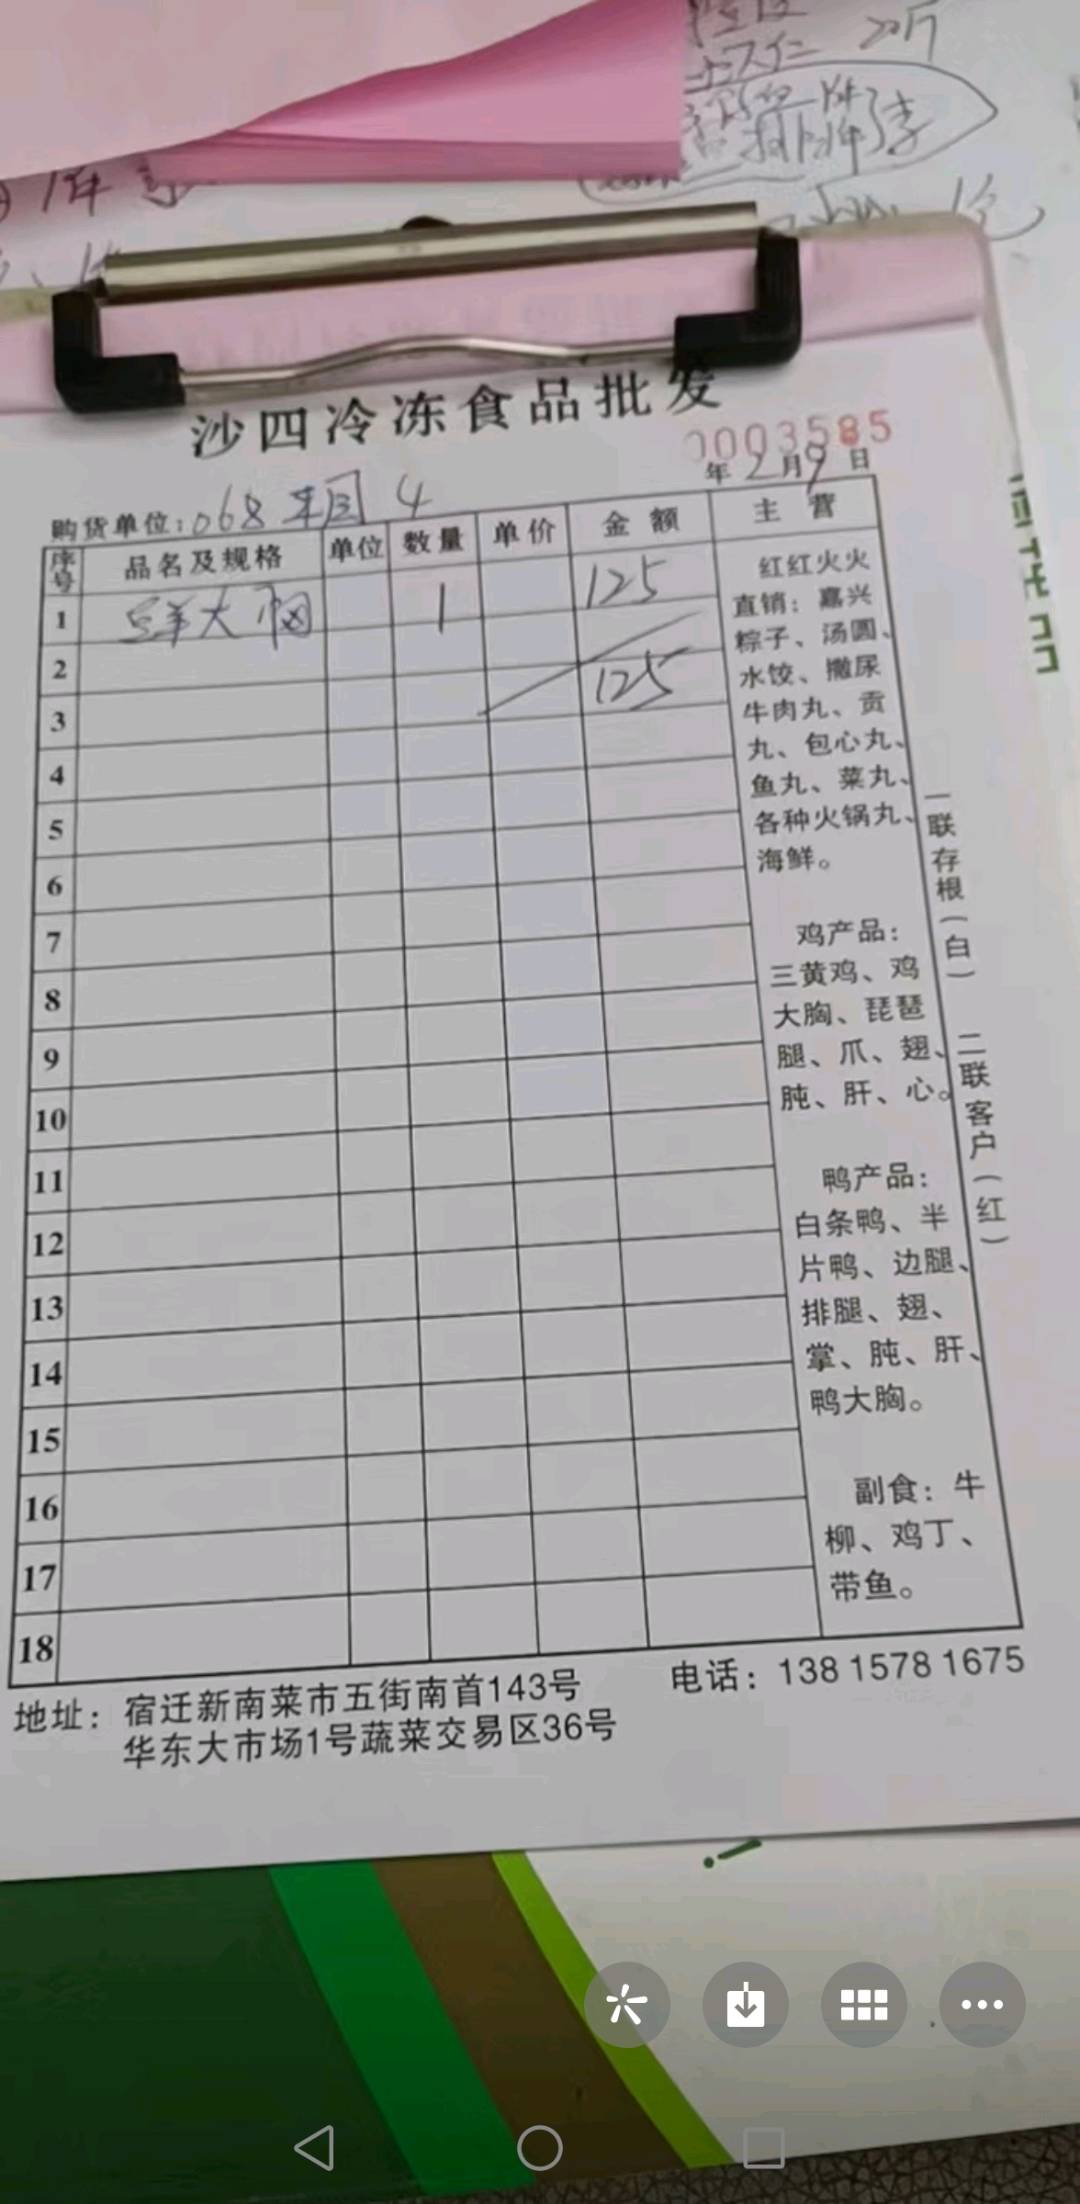 20斤
1件
沙四冷冻食品批发
0003585
年2月9日
购货单位：068 4
序号 品名及规格 单位 数量 单价 金额 主营
1 大胸 1 125
2
125
3
4
5
6
7
8
9
10
11
12
13
14
15
16
17
18
红红火火
直销：嘉兴
粽子、汤圆、
水饺、撒尿
牛肉丸、贡
丸、包心丸、
鱼丸、菜丸、
各种火锅丸、
海鲜。
鸡产品：
三黄鸡、鸡
大胸、琵琶
腿、爪、翅、
肫、肝、心。
鸭产品：
白条鸭、半
片鸭、边腿、
排腿、翅、
掌、肫、肝、
鸭大胸。
副食：牛
柳、鸡丁、
带鱼。
一联存根（白） 二联客户（红）
地址：宿迁新南菜市五街南首143号 电话：138 1578 1675
华东大市场1号蔬菜交易区36号